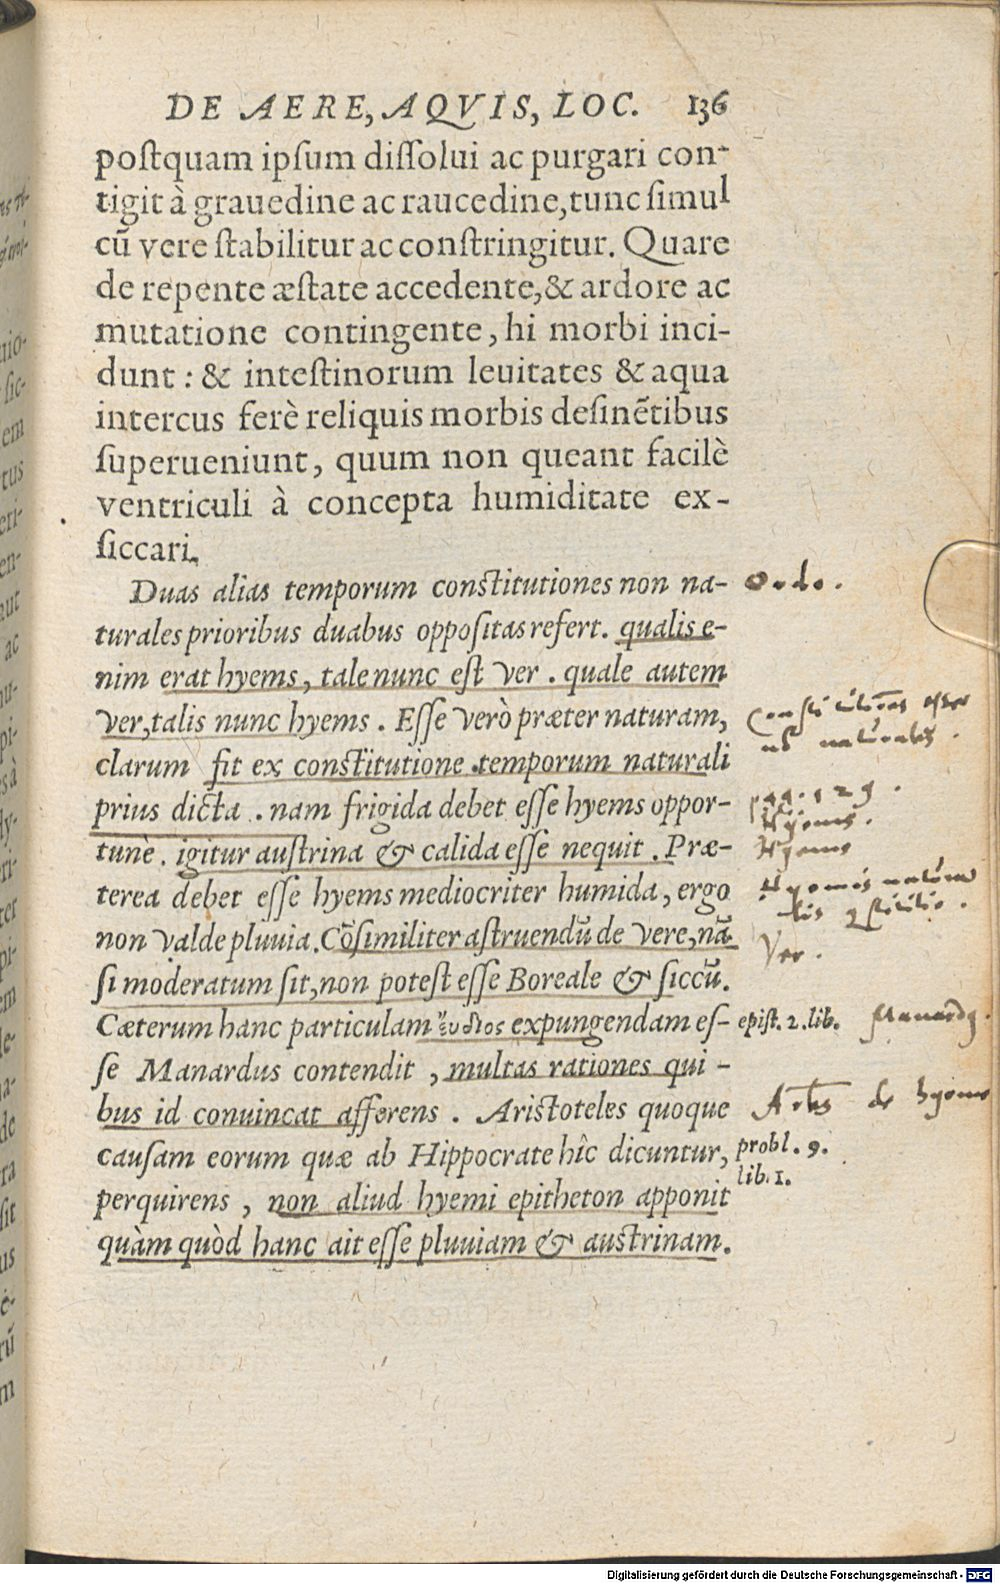 DE AERE, AQVIS, LOC. 136
postquam ipſum diſſolui ac purgari con-
tigit à grauedine ac raucedine, tunc ſimul
cū vere ſtabilitur ac conſtringitur. Quare
de repente æſtate accedente, & ardore ac
mutatione contingente, hi morbi inci-
dunt: & inteſtinorum leuitates & aqua
intercus ferè reliquis morbis deſinētibus
ſuperueniunt, quum non queant facilè
ventriculi à concepta humiditate ex-
ſiccari.
Duas alias temporum conſtitutiones non na-
Ordo.
turales prioribus duabus oppoſitas refert. qualis e-
nim erat hyems, tale nunc eſt ver. quale autem
ver, talis nunc hyems. Eſſe verò præter naturam,
clarum fit ex conſtitutione temporum naturali
prius dicta. nam frigida debet eſſe hyems oppor-
pag. 129.
Hyems.
tunè. igitur auſtrina & calida eſſe nequit. Præ-
Hyems
terea debet eſſe hyems mediocriter humida, ergo
non valde pluuia. Cōſimiliter aſtruendū de vere, nā
Ver.
ſi moderatum ſit, non poteſt eſſe Boreale & ſiccū.
Cæterum hanc particulam εὔδιος expungendam eſ-
epiſt. 2. lib.
ſe Manardus contendit, multas rationes qui-
bus id conuincat afferens. Ariſtoteles quoque
de hyeme
cauſam eorum quæ ab Hippocrate hîc dicuntur,
probl. 9.
lib. 1.
perquirens, non aliud hyemi epitheton apponit
quàm quòd hanc ait eſſe pluuiam & auſtrinam.
Digitalisierung gefördert durch die Deutsche Forschungsgemeinschaft - DFG